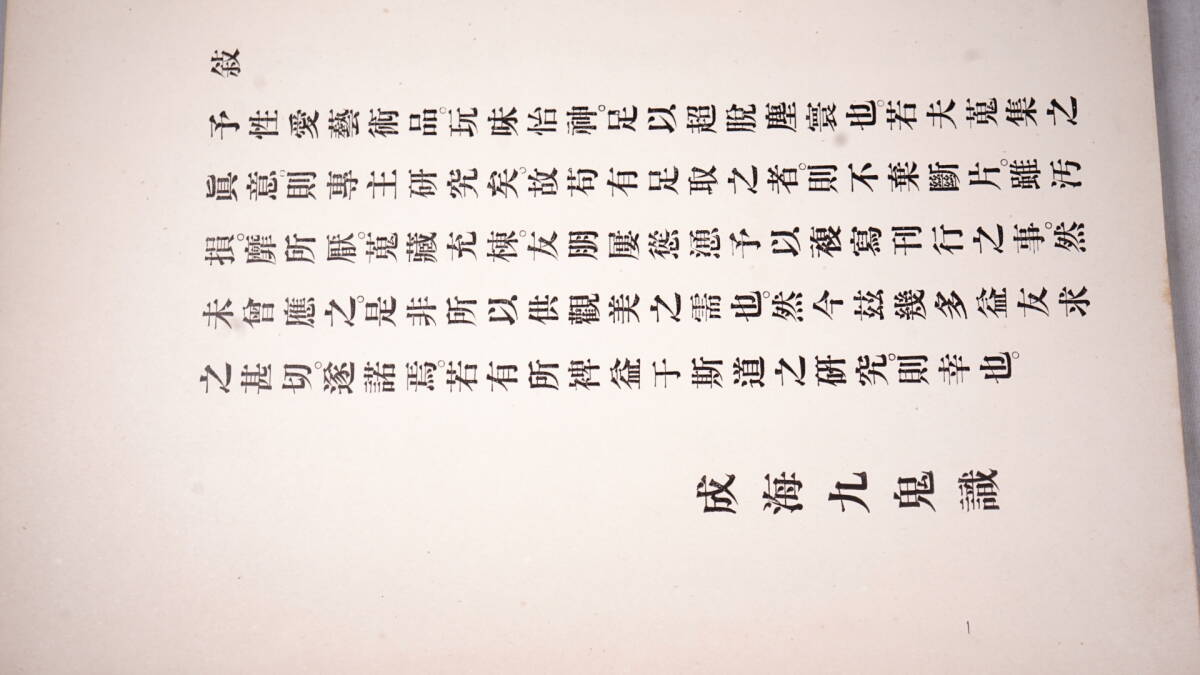 敍
予性愛藝術品。玩味怡神。足以超脫塵寰也。若夫蒐集之
眞意。則專主研究矣。故苟有足取之者。則不棄斷片。雖汚
損。靡所厭。蒐藏充棟。友朋屢慫慂予以複寫刊行之事。然
未曾應之。是非所以供觀美之需也。然今玆幾多益友求
之甚切。遂諾焉。若有所裨益于斯道之硏究。則幸也。
成海九鬼識
1